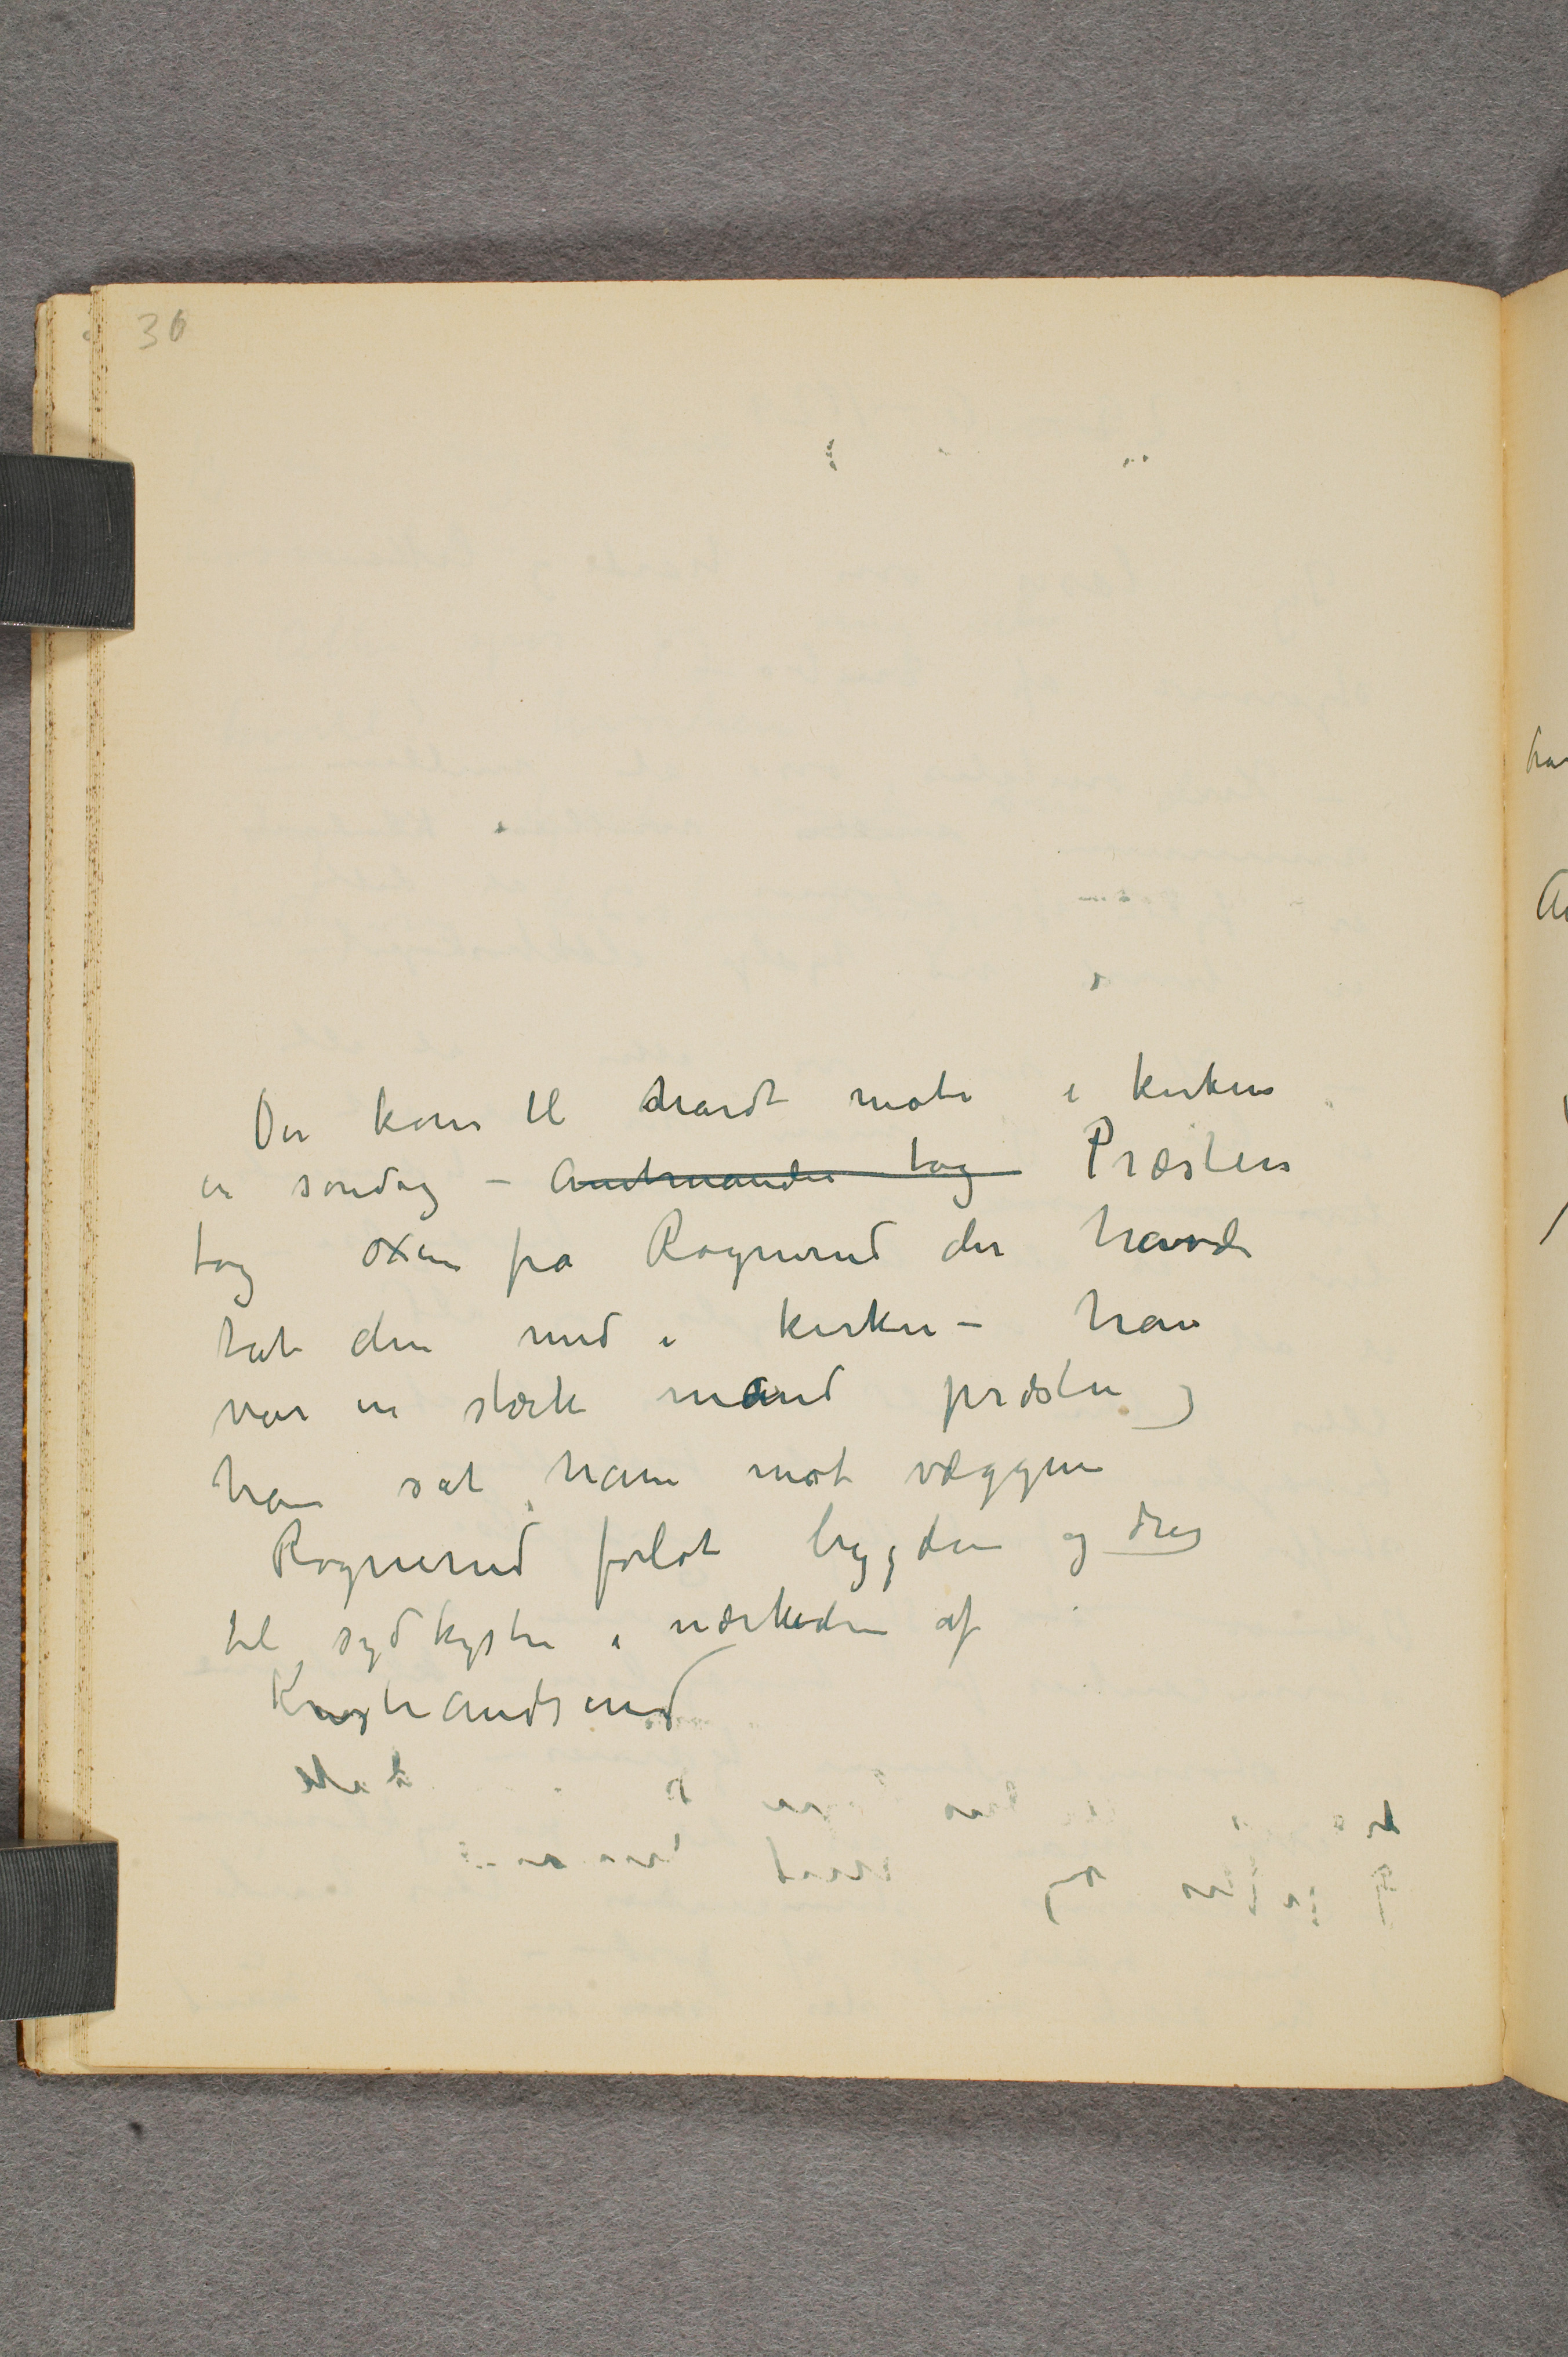 36
Der kom til hardt møte i kirken
en søndag – Amtmanden tog Præsten
tog øxen fra Rognerud der havde
tat den med i kirken – han
var en stærk mand præsten og
han sat ham mot væggen
Rognerud forlot bygden og drog
til sydkysten i nærheden af
Kristiandsund